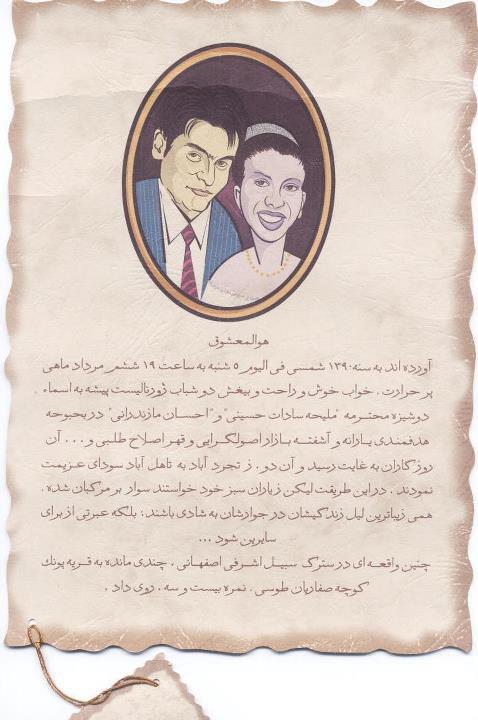 هوالمعشوق
آورده اند به سنه ۱۳۹۰ شمسی فی الیوم ۵ شنبه به ساعت ۱۹ ششم مرداد ماهی
پر حرارت . خواب خوش و راحت و بیغش دو شباب ژورنالیست پیشه به اسماء .
دوشیزه محترمه "ملیحه سادات حسینی" و "احسان مازندرانی" در بحبوحه
هدفمندی یارانه و آشفته بازار اصولگرایی و قهر اصلاح طلبی و . . . آن
روزگاران به غایت رسید و آن دو . ز تجرد آباد به تاهل آباد سودای عزیمت
نمودند . در این طریقت لیکن ز یاران سبز خود خواستند سوار بر مرکبان شده .
همی زیباترین لیل زندگیشان در جوارشان به شادی باشند؛ بلکه عبرتی از برای
سایرین شود ...
چنین واقعه ای در سترگ سبیل اشرفی اصفهانی . چندی مانده به قریه پونک
کوچه صفاریان طوسی . نمره بیست و سه . روی داد .